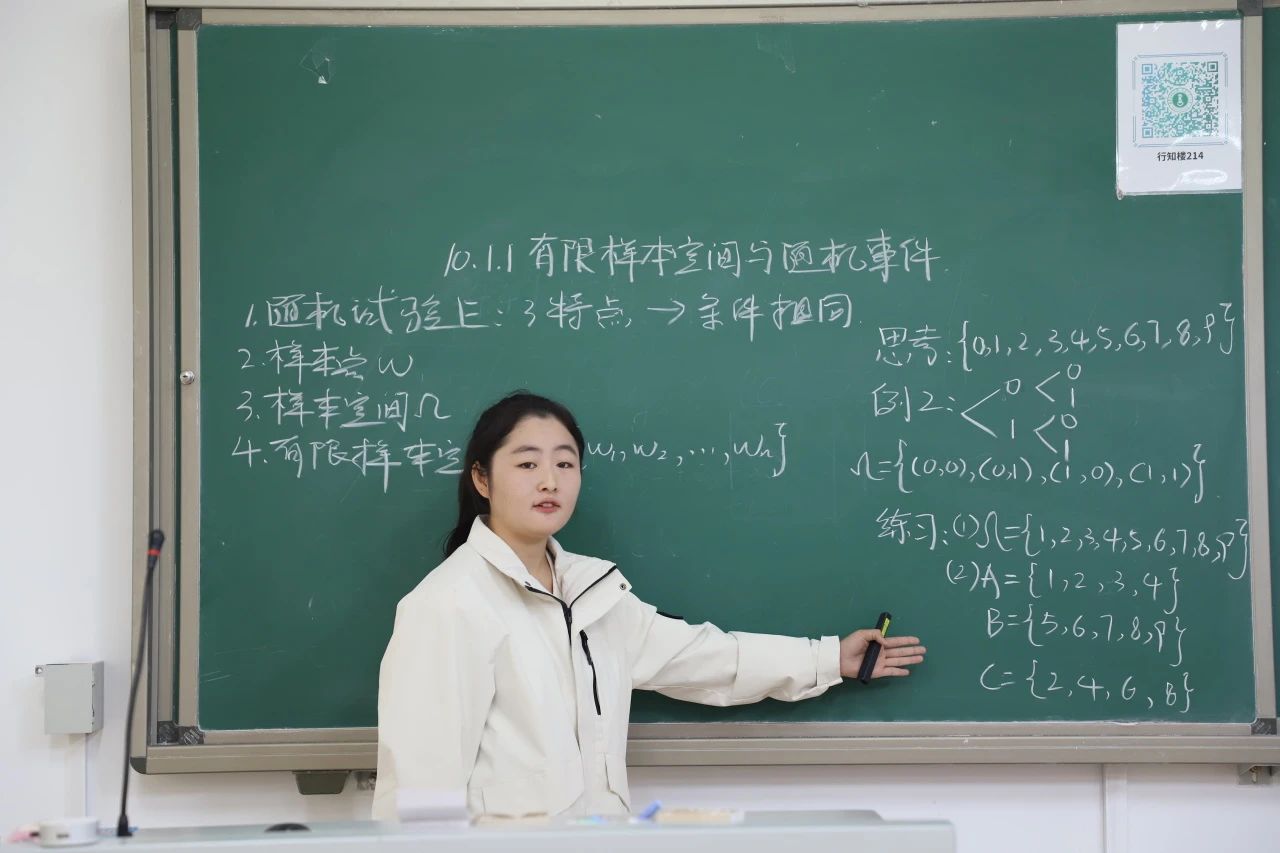 行知楼214
10.1.1 有限样本空间与随机事件
1.随机试验E:3特点→条件相同
2.样本点w
3.样本空间Ω
4.有限样本空 w₁,w₂,…,wₙ}
思考:{0,1,2,3,4,5,6,7,8,9}
例2:< 0 < 0 1
1 < 0 1
Ω={(0,0),(0,1),(1,0),(1,1)}
练习:(1)Ω={1,2,3,4,5,6,7,8,9}
(2)A={1,2,3,4}
B={5,6,7,8,9}
C={2,4,6,8}